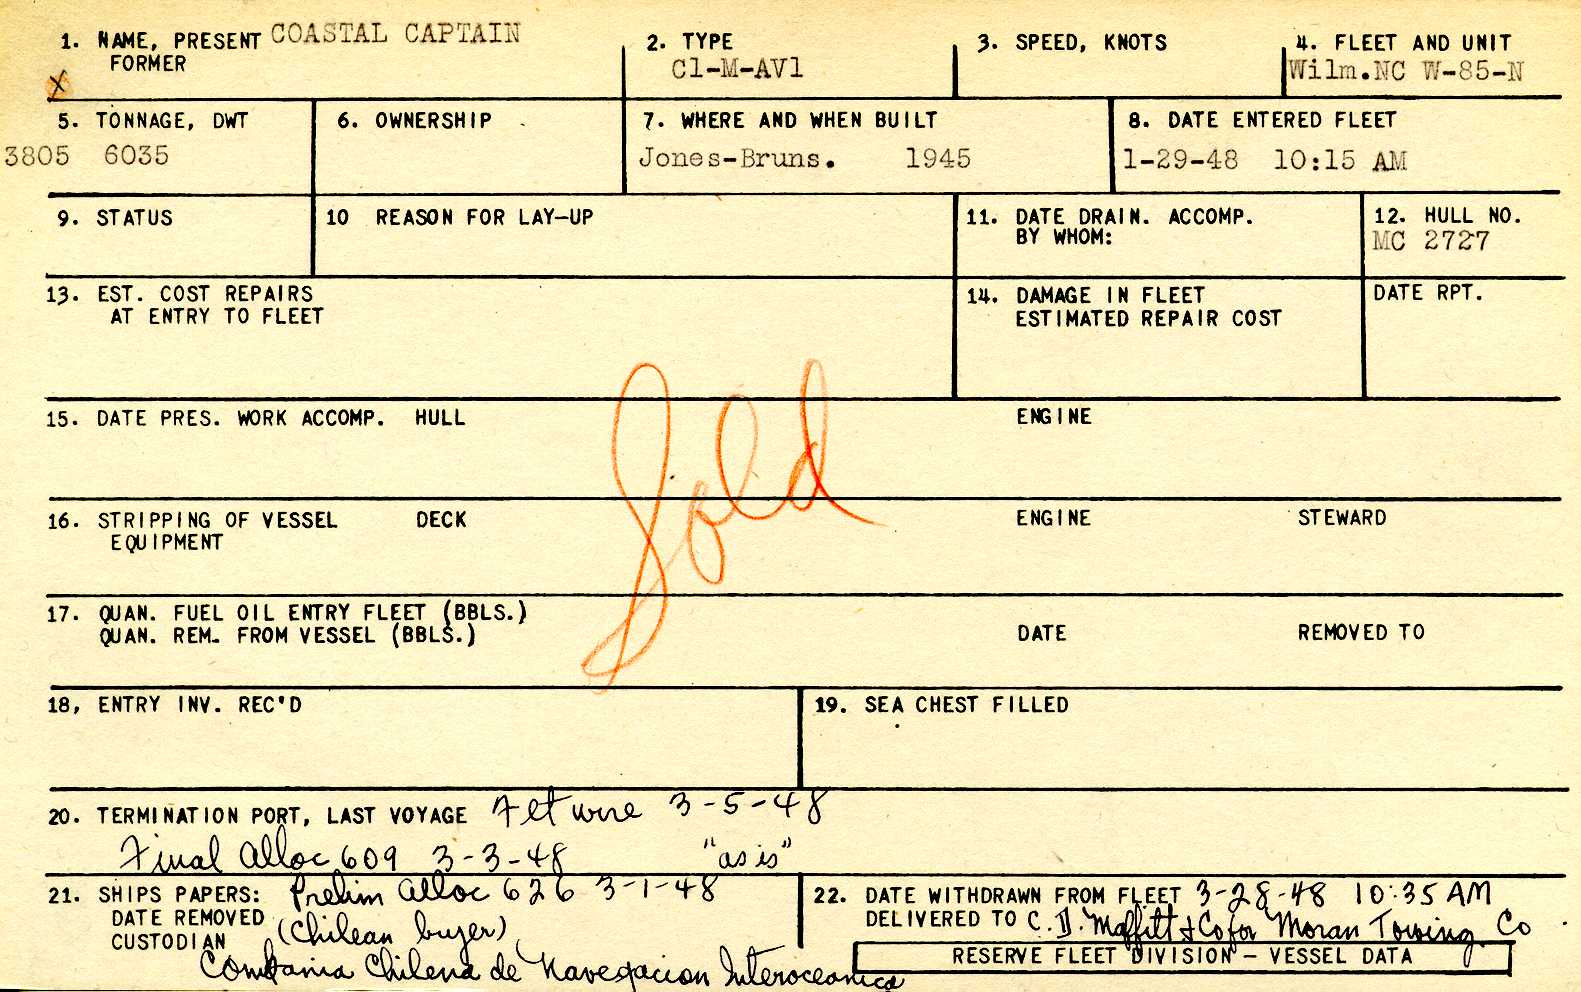 1. NAME, PRESENT COASTAL CAPTAIN
FORMER
X
2. TYPE
C1-M-AV1
3. SPEED, KNOTS
4. FLEET AND UNIT
Wilm.NC W-85-N
5. TONNAGE, DWT
3805 6035
6. OWNERSHIP
7. WHERE AND WHEN BUILT
Jones-Bruns. 1945
8. DATE ENTERED FLEET
1-29-48 10:15 AM
9. STATUS
10 REASON FOR LAY-UP
11. DATE DRAIN. ACCOMP.
BY WHOM:
12. HULL NO.
MC 2727
13. EST. COST REPAIRS
AT ENTRY TO FLEET
14. DAMAGE IN FLEET
ESTIMATED REPAIR COST
DATE RPT.
15. DATE PRES. WORK ACCOMP. HULL ENGINE
Sold
16. STRIPPING OF VESSEL DECK ENGINE STEWARD
EQUIPMENT
17. QUAN. FUEL OIL ENTRY FLEET (BBLS.)
QUAN. REM. FROM VESSEL (BBLS.) DATE REMOVED TO
18, ENTRY INV. REC'D
19. SEA CHEST FILLED
20. TERMINATION PORT, LAST VOYAGE Flt wire 3-5-48
Final Alloc 609 3-3-48 "as is"
21. SHIPS PAPERS: Prelim Alloc 626 3-1-48
DATE REMOVED (Chilean buyer)
CUSTODIAN
Compania Chilena de Navegacion Interoceanica
22. DATE WITHDRAWN FROM FLEET 3-28-48 10:35 AM
DELIVERED TO C. D. Maffitt & Co for Moran Towing Co
RESERVE FLEET DIVISION - VESSEL DATA